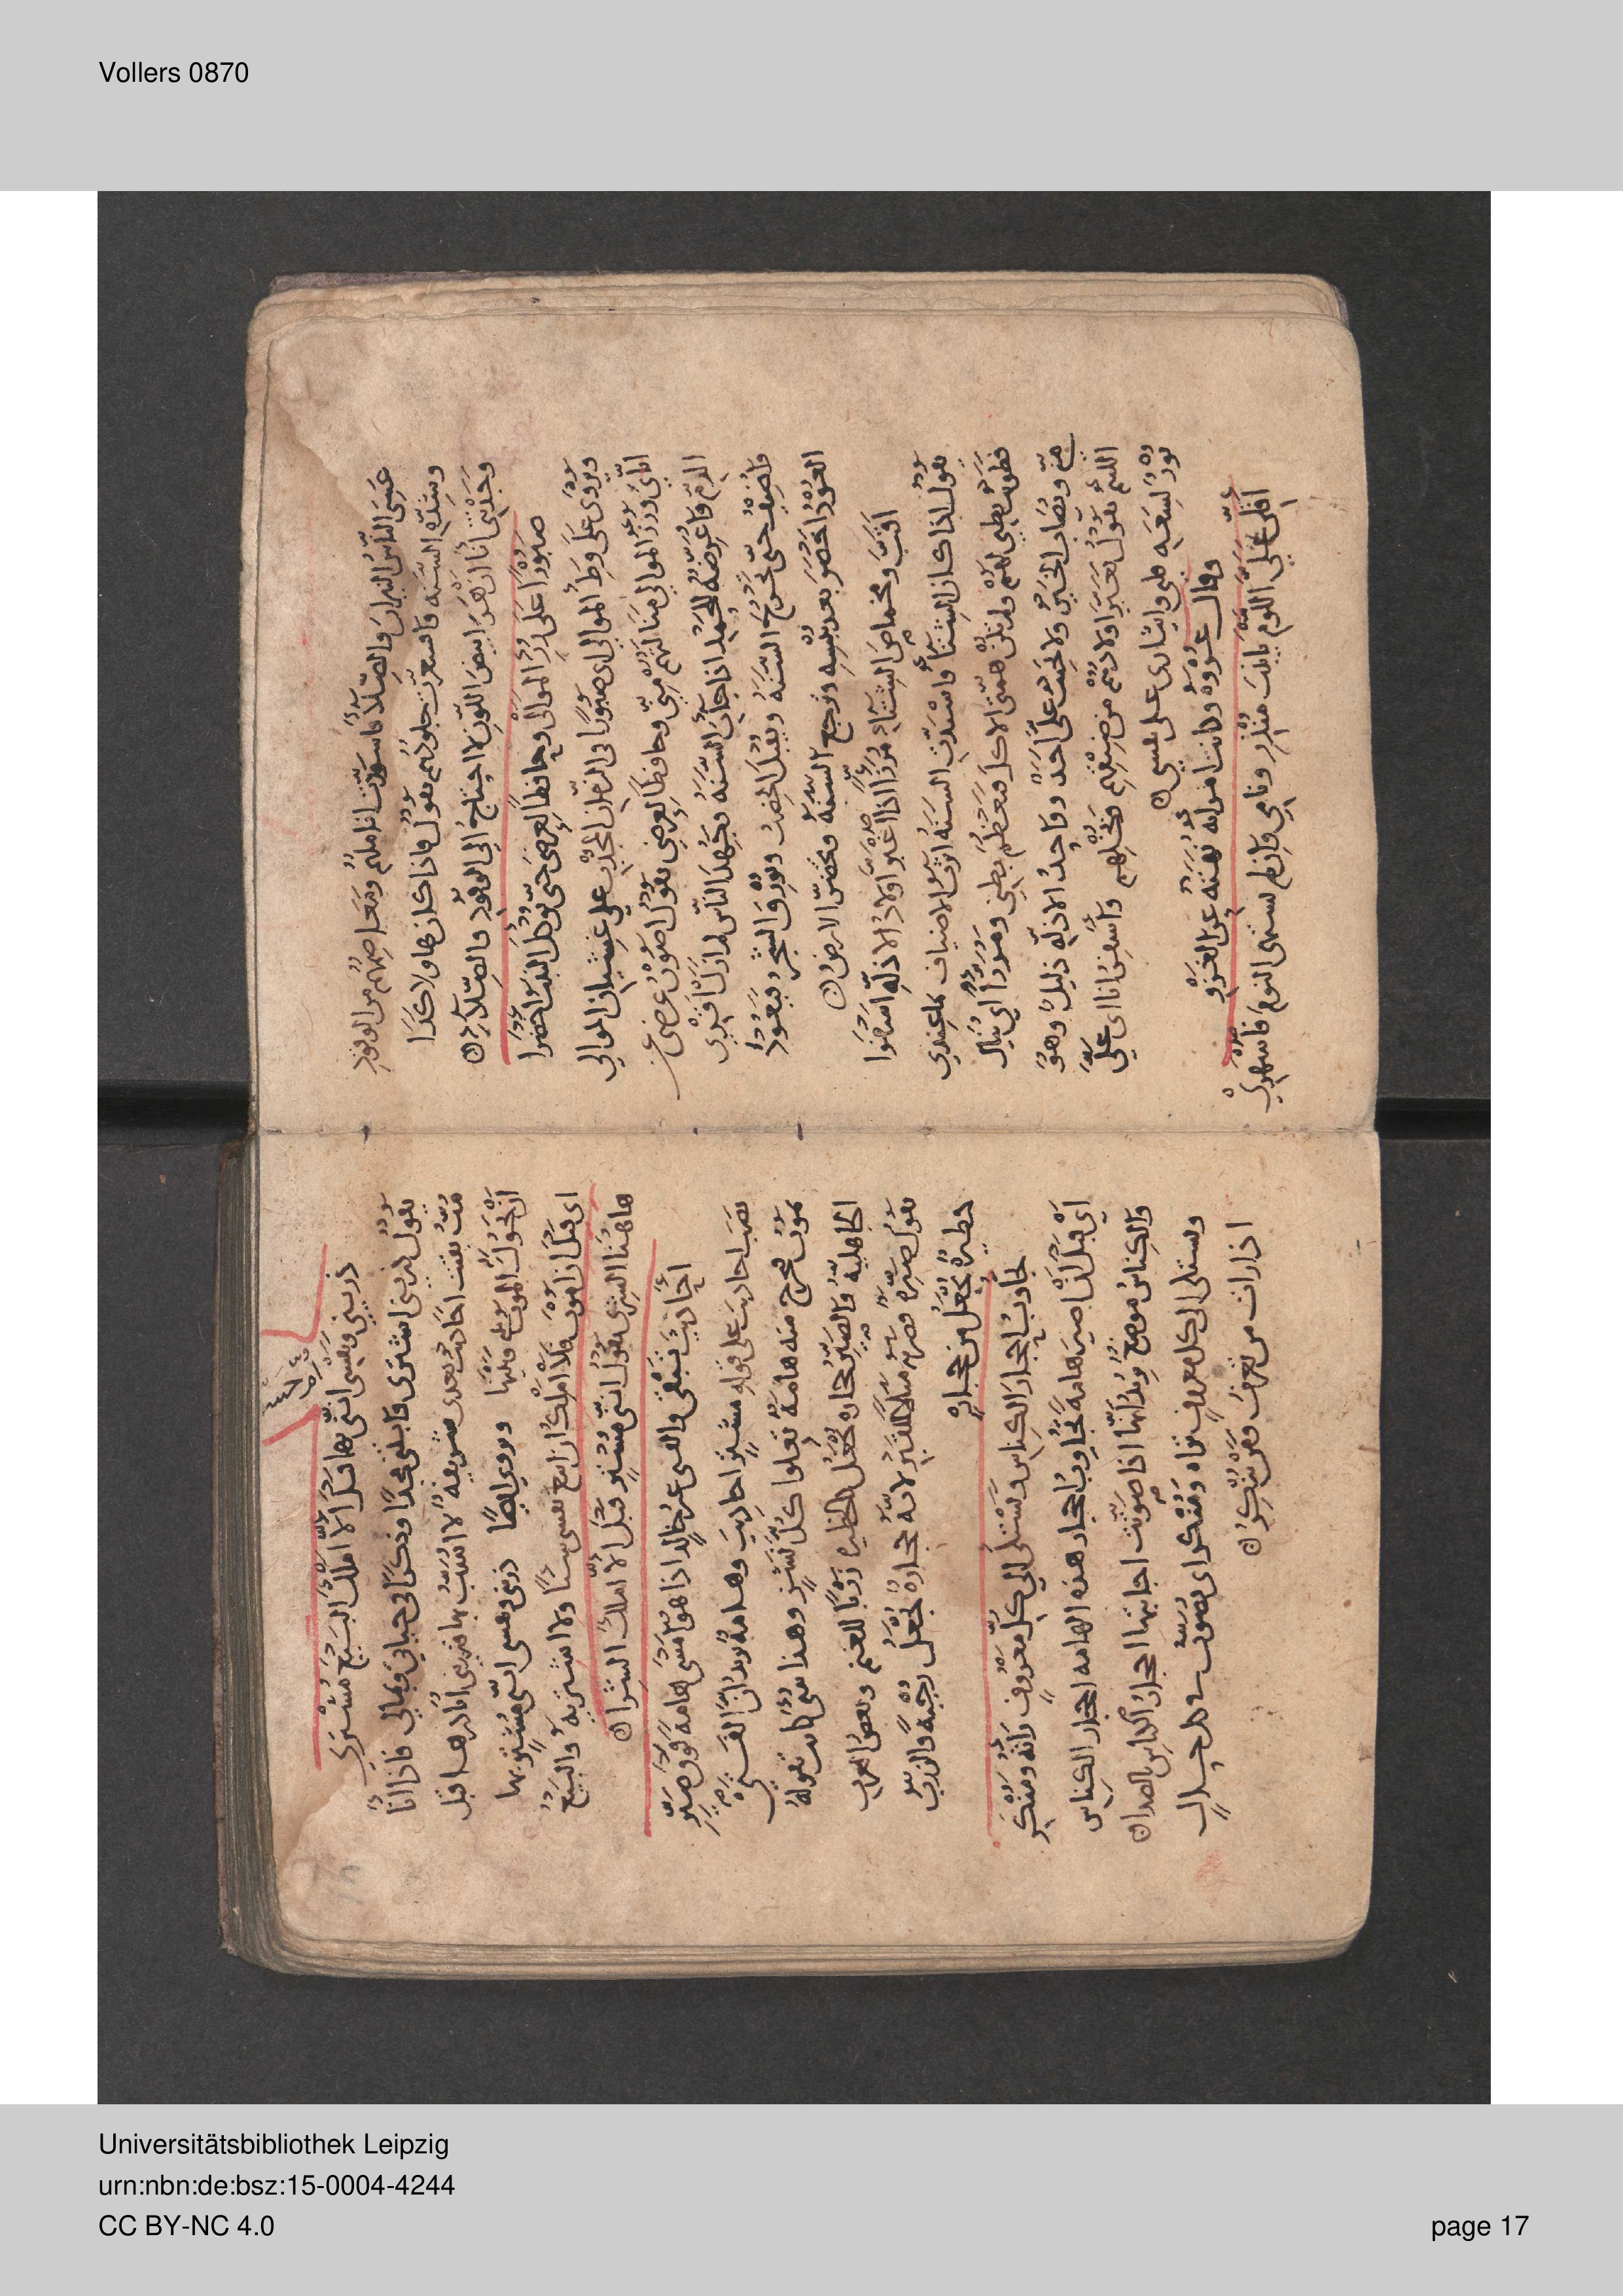 Vollers 0870
عَسَى الناس النيران والصِّلَآءُ فاسودّت اناملهم ومعاصمهم من الوقود
وشِدّه السنه واقشعرّت جلودهم يقول فاذا كان هاولا كذا
وجدتنى انا ازهرَ ابيض اللون لا احتاج الى الوقود والصِّلآءِ ه
صبورًا على رُزْءِ الموالى وحافظًا لعرضى حتى يوكل النبت اخضرا
ويُروى على وطء الموالى اى صبورًا فى الزمان الجَدْب على غشيان الموالى
اياى ورزء الموالى منالهم منى وحافظًا لعرضى يقول اصون عرضى عن
الذم واعرضه للحمد اذا جات السنه وجهد الناس لم ازل اقرى
واضيف حتى تخرج السنه ويقبل الخصب ويورق الشجر فيعود
العود اخضر بعد يبسه وترجع السنه وتخضرّ الارض ه
اقَبّ ومخماص الشتاء مُرزّأ اذا اغبرّ اولاد الاذلّه اسفروا
يقول اذا كان الشتا واشتدت السنه اوثر الاضياف بما عندى
فطويت بطنى لهم ولم تكن همتى الاكل فيعظم بطنى ومرزّأ اى ينال
منّى ويُصاب الخير ولا يحسب علىّ احد وواحد الاذله ذليل وهو
الليم يقول تغيّر اولادهم من ضيقهم وبخلهم واسفر انا اى على
نور لسعه قلبى وايثارى على نفسى ه
وقال عروه وكانت امراته نهته عن الغزو
اقلّى علىّ اللوم يابنت منذر ونامى وان لم تشتهى النوم فاسهرى
ذرينى ونفسى امّ حسّان اننى بها قبل ان لا املك البيع مشترى
يقول ذرينى اشترى وابتنى مجدًا وذكرًا فى حياتى وبمالى فاذا انا
مُتُّ بقيت احاديث بعدى شريفه لا اسبّ بها ذرينى ابادرها قبل
ان يحول الموت بينى وبينها ويروى ايضًا ذرينى ونفسى اننى مشترٍ بها
اى قبل ان اموت فلا املك ان ابيع نفسى شيا ولا اشتريه والبيع
هاهنا الشرى يقول اننى مشترٍ قبل الا املك الشرا ه
احاديثَ تبقى والفتى غير خالد اذا هو امسى هامة فوق صَيِّرِ
نصب احاديث على قوله مشترٍ احاديث وهامة يريد ان الفتى
يموت فتخرج منه هامة تعلوا كل نشز وهذا شى كانت تقوله
الجاهليه والصيّر حجاره تجعل كالحظيره زربًا للغنم وبعض العرب
يقول صيره فصيّره مثلا للقبر لانه حجارة تجعل رجبة والزرب
حظيرة تجعل من حجارة
تجاوب احجار الكناس وتشتكى الى كل معروف رأته ومنكر
اى قبل ان اصير هامة تجاوب احجار هذه الهامه احجار الكناس
والكناس موضع يريد انها اذا صوّتت اجابتها احجار الكناس بالصدا ه
وتشتكى الى كل معروف تراه ومنكر اى تصوّت فى كل حال
اذا رات من تعرف ومن تنكر ه
Universitätsbibliothek Leipzig
urn:nbn:de:bsz:15-0004-4244
CC BY-NC 4.0
page 17